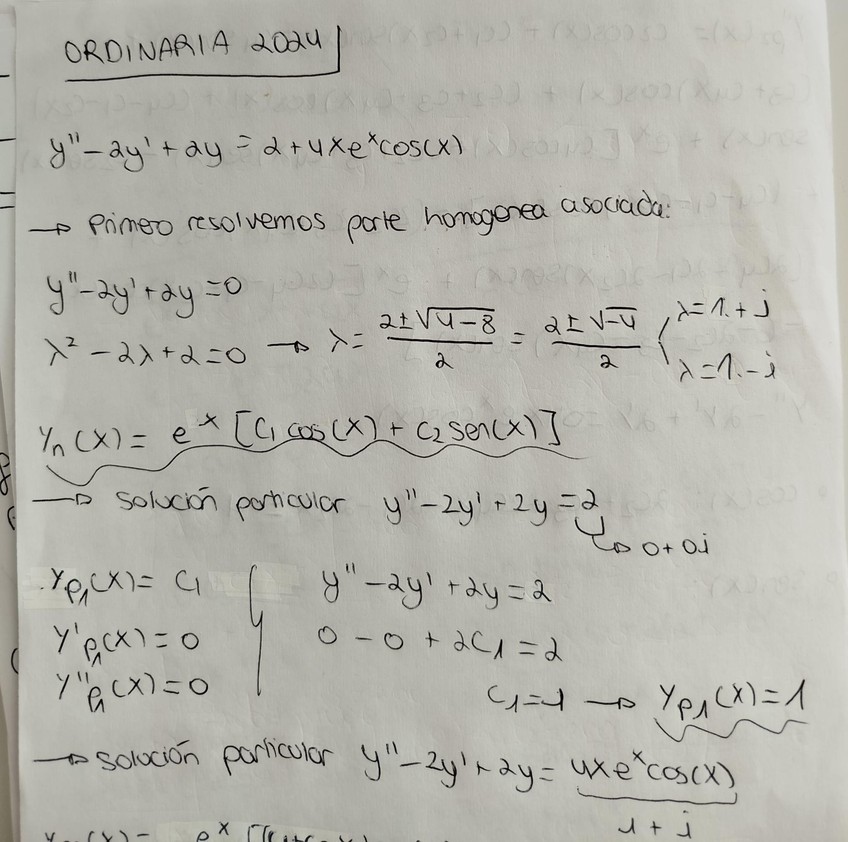 ORDINARIA 2024
y'' - 2y' + 2y = 2 + 4xe^x cos(x)
→ Primero resolvemos parte homogenea asociada:
y'' - 2y' + 2y = 0
λ² - 2λ + 2 = 0 → λ = (2 ± √(4-8))/2 = (2 ± √-4)/2 { λ = 1 + i
λ = 1 - i
Yh(x) = e^x [C1 cos(x) + C2 sen(x)]
→ solución particular y'' - 2y' + 2y = 2
↳ 0 + 0i
Yp1(x) = C1 } y'' - 2y' + 2y = 2
Y'p1(x) = 0 0 - 0 + 2C1 = 2
Y''p1(x) = 0
C1 = 1 → Yp1(x) = 1
→ solución particular y'' - 2y' + 2y = 4xe^x cos(x)
1 + i